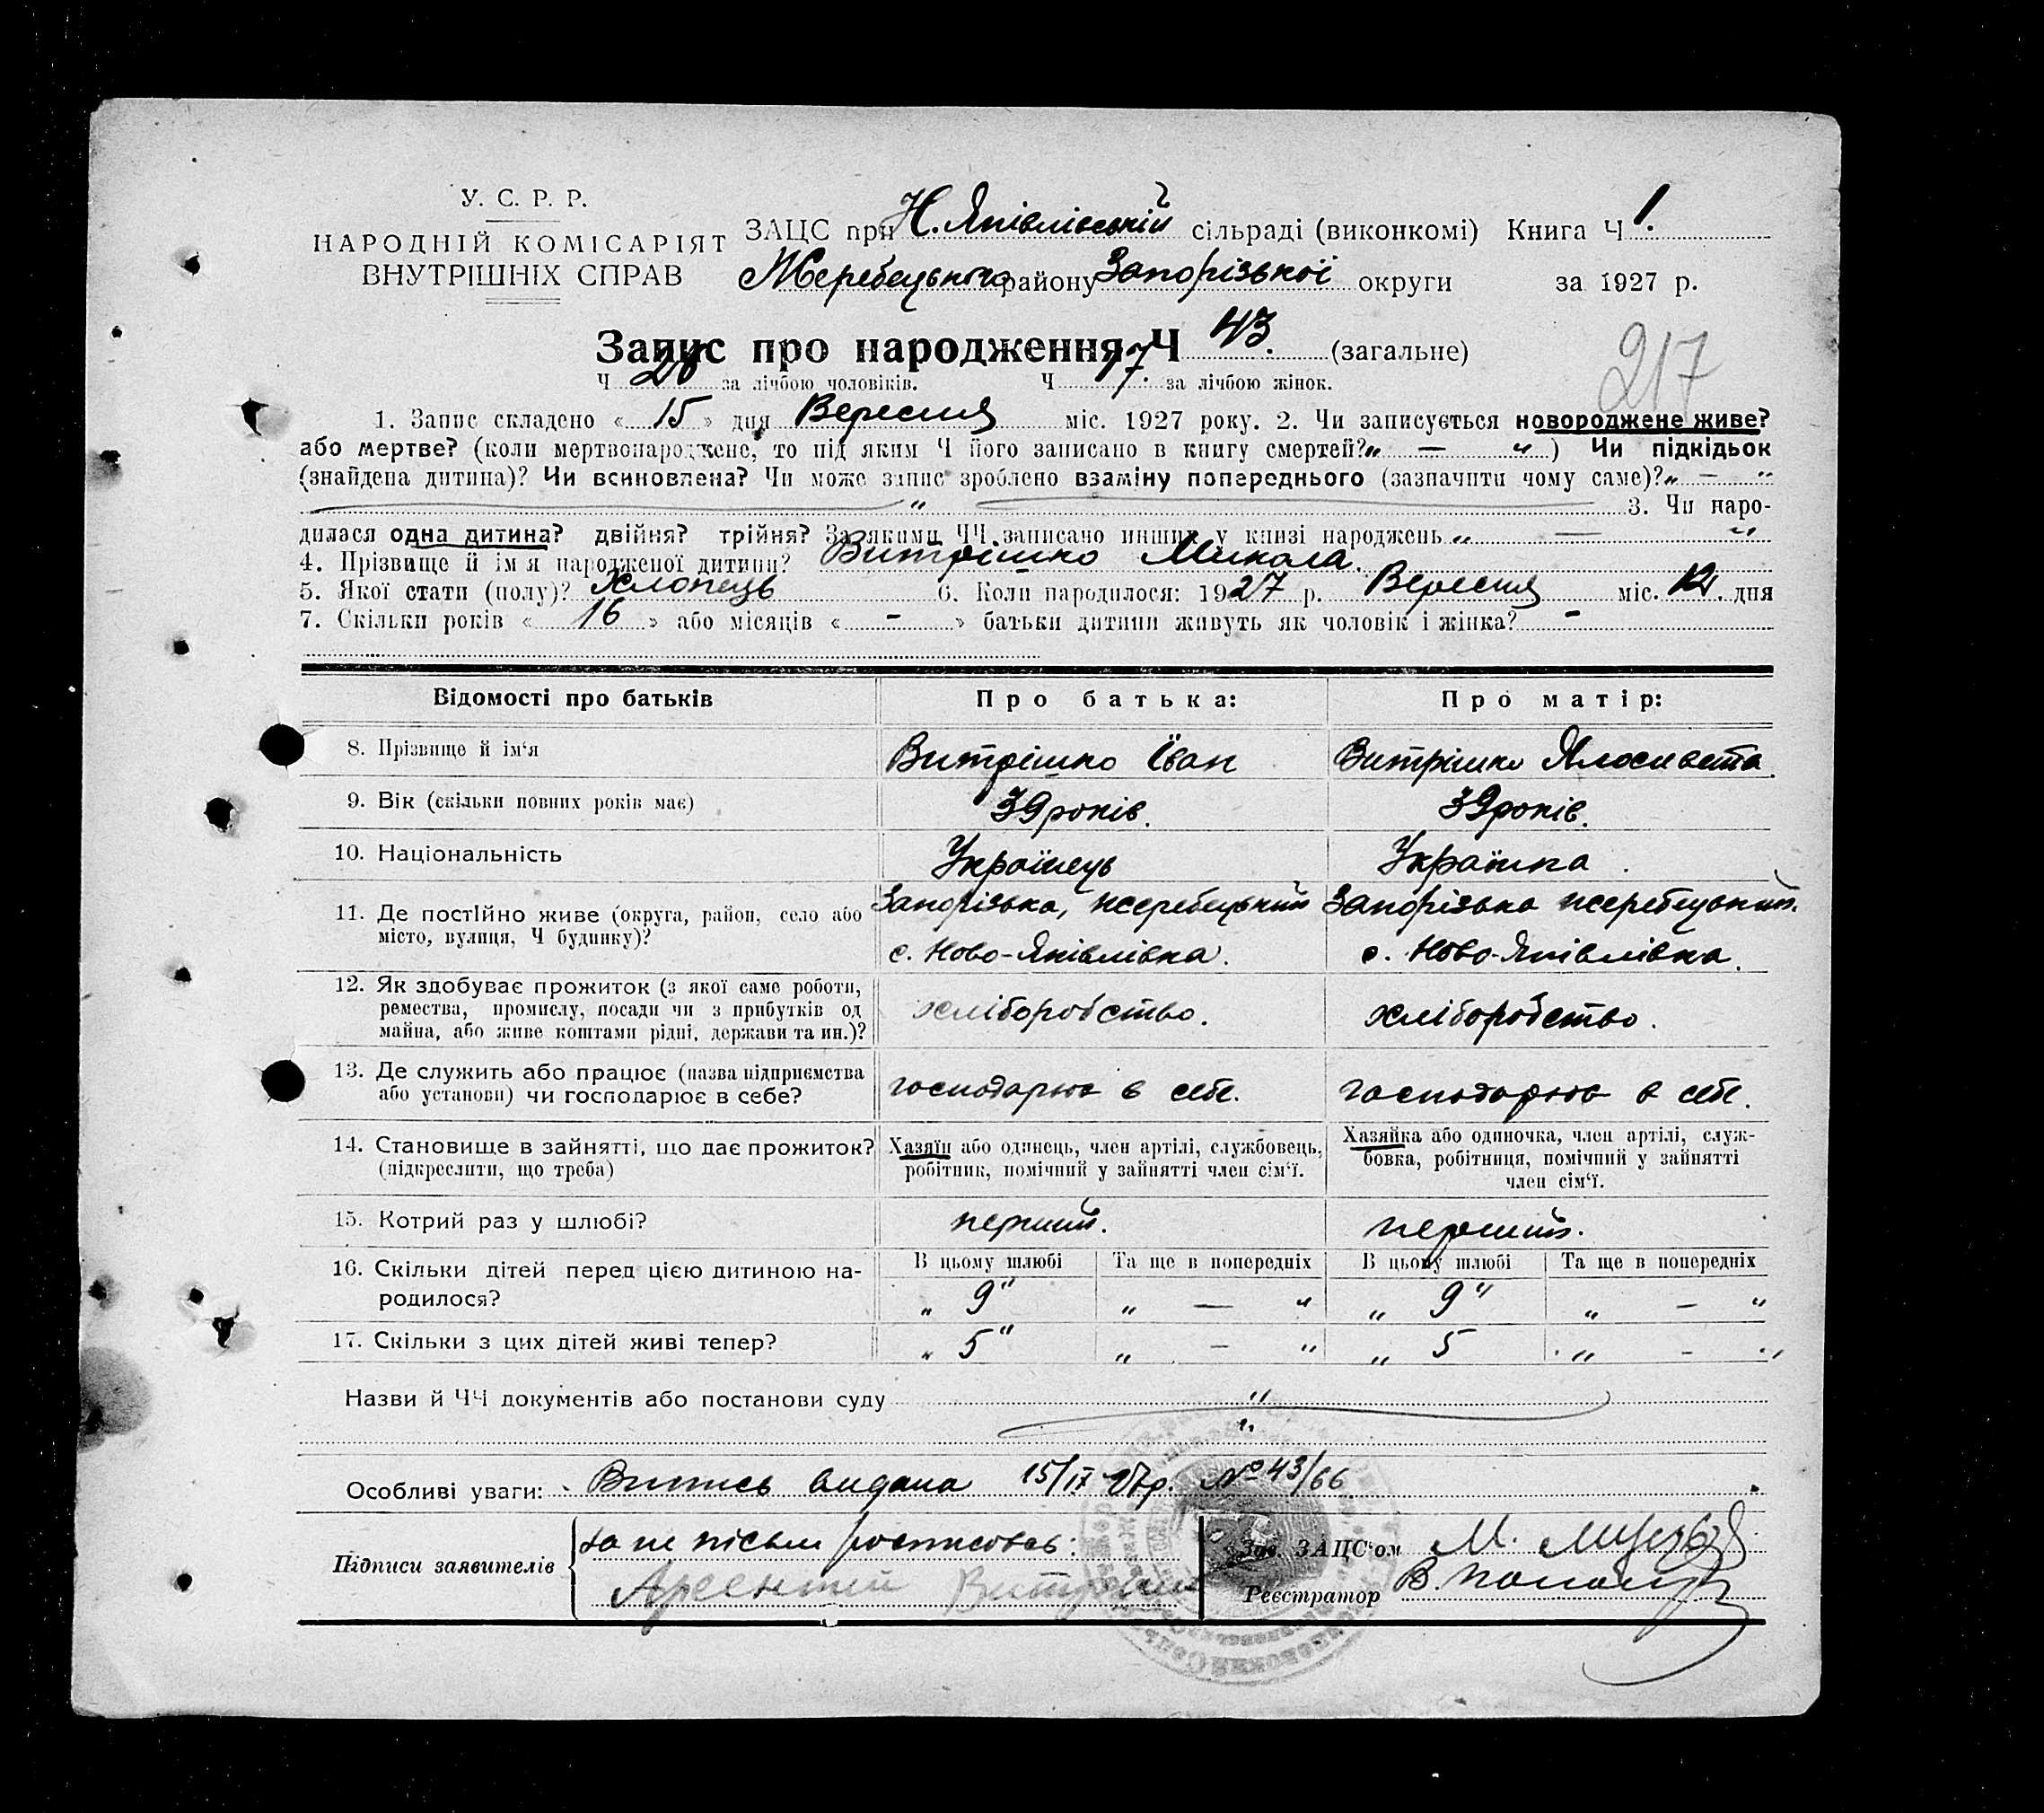 У. С. Р. Р.
НАРОДНІЙ КОМІСАРІЯТ
ВНУТРІШНІХ СПРАВ
ЗАЦС при Н. Яківлівській сільраді (виконкомі) Книга Ч 1.
Жеребецького району Запорізької округи за 1927 р.
Запис про народження Ч 43. (загальне)
217
Ч 26 за лічбою чоловіків. Ч 17. за лічбою жінок.
1. Запис складено « 15 » дня Вересня міс. 1927 року. 2. Чи записується новороджене живе?
або мертве? (коли мертвонароджене, то під яким Ч його записано в книгу смертей? „ — “ ) Чи підкідьок
(знайдена дитина)? Чи всиновлена? Чи може запис зроблено взаміну попереднього (зазначити чому саме)? „ — “
„ 3. Чи наро-
дилася одна дитина? двійня? трійня? За якими ЧЧ записано инших у книзі народжень „ — “
4. Прізвище й ім'я народженої дитини? Витрішко Микола.
5. Якої стати (полу)? Хлопець 6. Коли народилося: 1927 р. Вересня міс. 12. дня
7. Скільки років « 16 » або місяців « - » батьки дитини живуть як чоловік і жінка? -
Відомості про батьків Про батька: Про матір:
8. Прізвище й ім‘я Витрішко Іван Витрішко Ялосивета
9. Вік (скільки повних років має) 39 років. 39 років.
10. Національність Українець Українка.
11. Де постійно живе (округа, район, село або Запорізька, жеребецький Запорізька жеребецький.
місто, вулиця, Ч будинку)? с. Ново-Яківлівка. с. Ново-Яківлівка.
12. Як здобуває прожиток (з якої саме роботи,
ремества, промислу, посади чи з прибутків од хліборобство. хліборобство.
майна, або живе коштами рідні, держави та ин.)?
13. Де служить або працює (назва підприємства
або установи) чи господарює в себе? господарює в себе. господарює в себе.
14. Становище в зайнятті, що дає прожиток? Хазяїн або одинець, член артілі, службовець, Хазяйка або одиночка, член артілі, служ-
(підкреслити, що треба) робітник, помічний у зайнятті член сім‘ї. бовка, робітниця, помічний у зайнятті
член сім‘ї.
15. Котрий раз у шлюбі? перший. перший.
16. Скільки дітей перед цією дитиною на- В цьому шлюбі Та ще в попередніх В цьому шлюбі Та ще в попередніх
родилося? „ 9 “ „ — “ „ 9 “ „ — “
17. Скільки з цих дітей живі тепер? „ 5 “ „ — “ „ 5 „ - “
Назви й ЧЧ документів або постанови суду „
„
Особливі уваги: Випись видана 15/IX 27р. № 43/66
Підписи заявителів за не письм росписовсь:
Арсентий Витрішко
Зав. ЗАЦС‘ом М.
Реєстратор В.